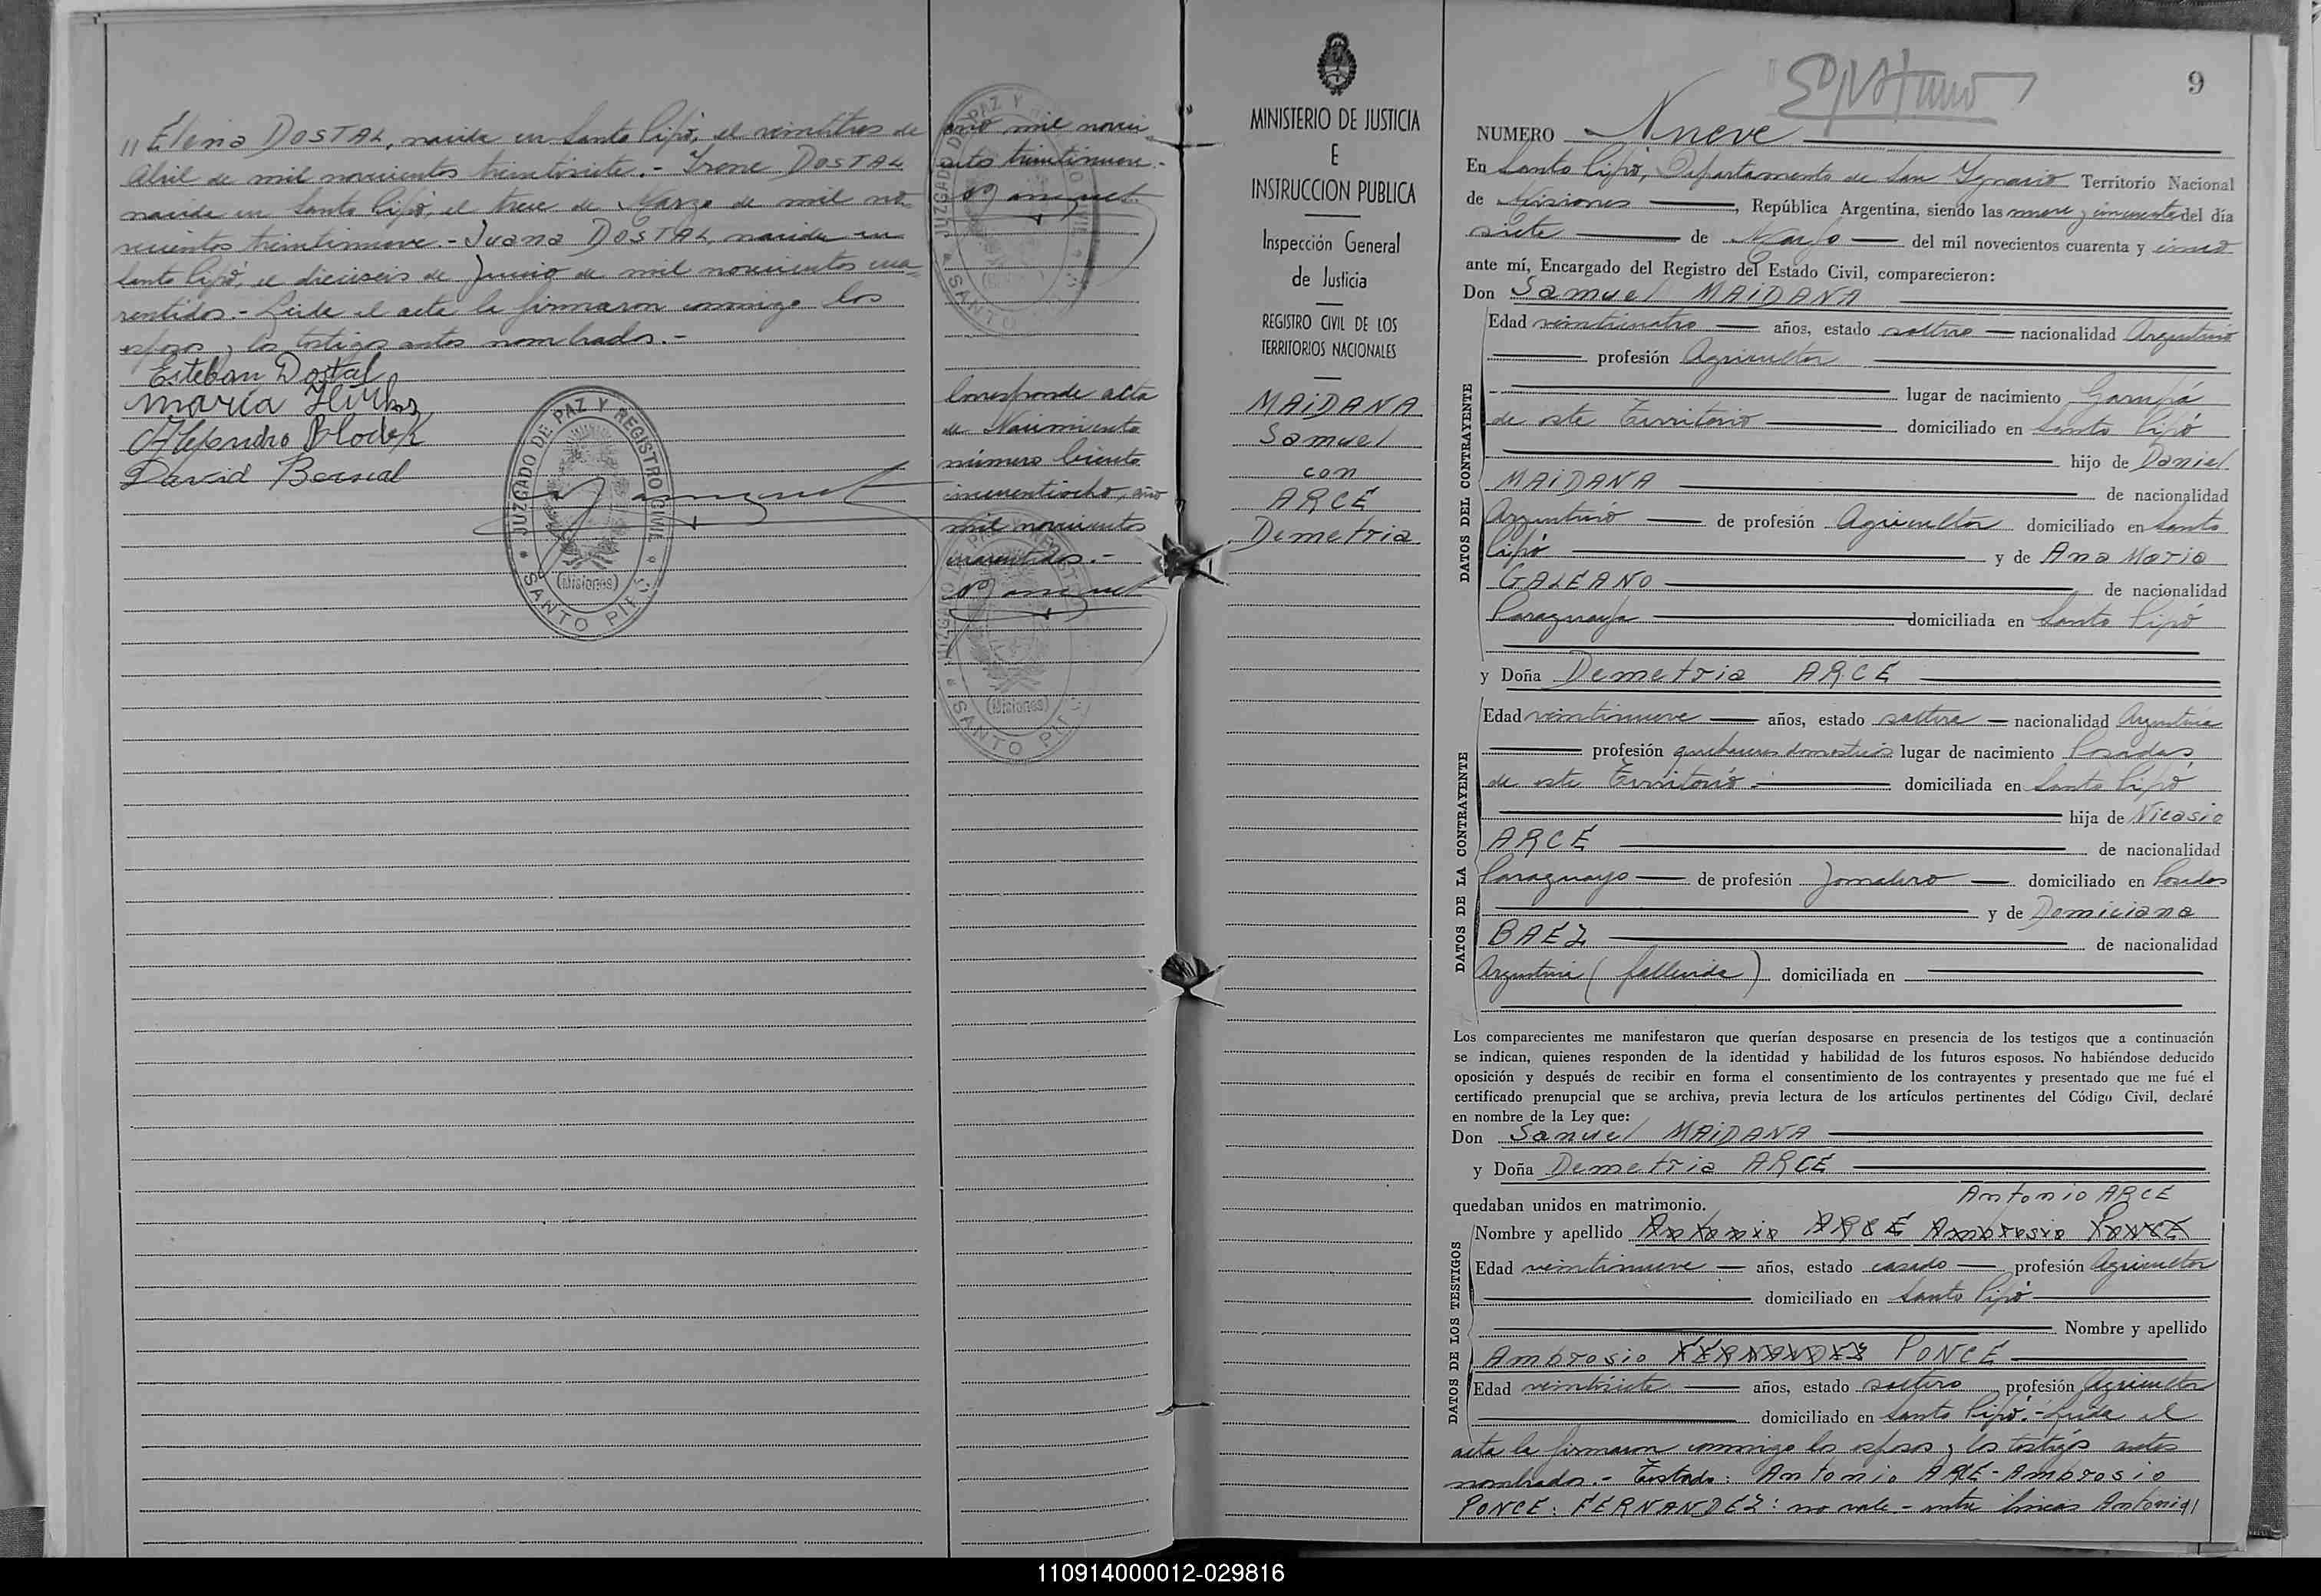 " Elena DOSTAL, nacida en Santo Pipó, el veintitres de
Abril de mil novecientos treintisiete.- Irene DOSTAL
nacida en Santo Pipó, el trece de Marzo de mil no-
vecientos treintinueve.- Juana DOSTAL, nacida en
Santo Pipó, el dieciseis de Junio de mil novecientos cua-
rentidos.- Leida el acta la firmaron conmigo los
esposos y los testigos antes nombrados.-
Esteban Dostal
María
Alejandro Blodek
David Bernal
JUZGADO DE PAZ Y REGISTRO CIVIL
(Misiones)
SANTO PIPÓ
año mil novecien-
tos treintinueve.-
Corresponde acta
de Nacimiento
número ciento
cincuentiocho, año
mil novecientos
cuarentidos.-
JUZGADO DE PAZ Y REGISTRO CIVIL
(Misiones)
SANTO PIPÓ
MINISTERIO DE JUSTICIA
E
INSTRUCCION PUBLICA
Inspección General
de Justicia
REGISTRO CIVIL DE LOS
TERRITORIOS NACIONALES
MAIDANA
Samuel
con
ARCE
Demetria
9
NUMERO Nueve
En Santo Pipó, Departamento de San Ignacio Territorio Nacional
de Misiones, República Argentina, siendo las nueve y cincuenta del día
siete de Mayo del mil novecientos cuarenta y cinco
ante mí, Encargado del Registro del Estado Civil, comparecieron:
Don Samuel MAIDANA
DATOS DEL CONTRAYENTE
Edad veinticuatro años, estado soltero nacionalidad Argentino
profesión Agricultor
lugar de nacimiento Garupá
de este Territorio domiciliado en Santo Pipó
hijo de Daniel
MAIDANA de nacionalidad
Argentino de profesión Agricultor domiciliado en Santo
Pipó y de Ana Maria
GALEANO de nacionalidad
Paraguaya domiciliada en Santo Pipó
y Doña Demetria ARCE
DATOS DE LA CONTRAYENTE
Edad veintinueve años, estado soltera nacionalidad Argentina
profesión quehaceres domesticos lugar de nacimiento Posadas,
de este Territorio.- domiciliada en Santo Pipó
hija de Nicasio
ARCE de nacionalidad
Paraguayo de profesión Jornalero domiciliado en Posadas
y de Domiciana
BAEZ de nacionalidad
Argentina (fallecida) domiciliada en
Los comparecientes me manifestaron que querían desposarse en presencia de los testigos que a continuación
se indican, quienes responden de la identidad y habilidad de los futuros esposos. No habiéndose deducido
oposición y después de recibir en forma el consentimiento de los contrayentes y presentado que me fué el
certificado prenupcial que se archiva, previa lectura de los artículos pertinentes del Código Civil, declaré
en nombre de la Ley que:
Don Samuel MAIDANA
y Doña Demetria ARCE
quedaban unidos en matrimonio. Antonio ARCE
DATOS DE LOS TESTIGOS
Nombre y apellido Antonio ARCE Ambrosio PONCE
Edad veintinueve años, estado casado profesión Agricultor
domiciliado en Santo Pipó
Nombre y apellido
Ambrosio FERNANDEZ PONCE
Edad veintisiete años, estado soltero profesión Agricultor
domiciliado en Santo Pipó.- Leida el
acta la firmaron conmigo los esposos y los testigos antes
nombrados.- Testado: Antonio ARCE - Ambrosio
PONCE: FERNANDEZ: no vale - entre lineas Antonio
110914000012-029816